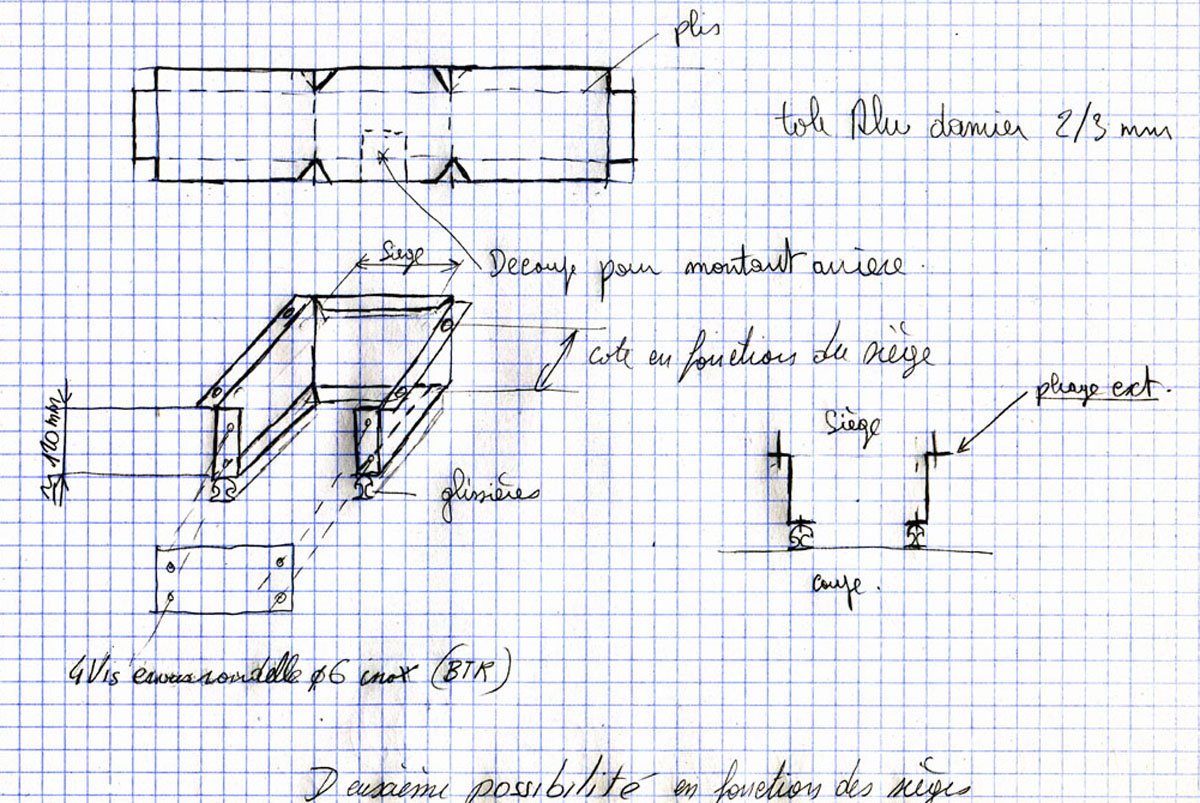 plis
tole Alu damier 2/3 mm
Siège
Decoupe pour montant arriere
cote en fonctions du siège
pliage ext.
Siège
120 mm
glissières
coupe.
4 Vis rondelle ø6 inox (BTR)
Deuxième possibilité en fonction des sièges